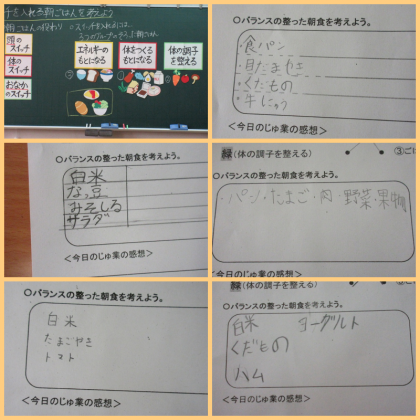 手を入れる朝ごはんを考えよう
朝ごはんの役わり
頭の
スイッチ
体の
スイッチ
おなか
のスイッチ
エネルギーの
もとになる
体をつくる
もとになる
体の調子
を整える
・食パン
・目だまやき
・くだもの
・牛にゅう
<今日のじゅ業の感想>
○バランスの整った朝食を考えよう。
白米
なっ豆
みそしる
サラダ
<今日のじゅ業の感想>
緑(体の調子を整える)
③ご
○バランスの整った朝食を考えよう。
・パン・たまご・肉・野菜・果物
<今日のじゅ業の感想>
○バランスの整った朝食を考えよう。
白米
たまごやき
トマト
<今日のじゅ業の感想>
緑(体の調子を整える)
○バランスの整った朝食を考えよう。
白米 ヨーグルト
くだもの
ハム
<今日のじゅ業の感想>